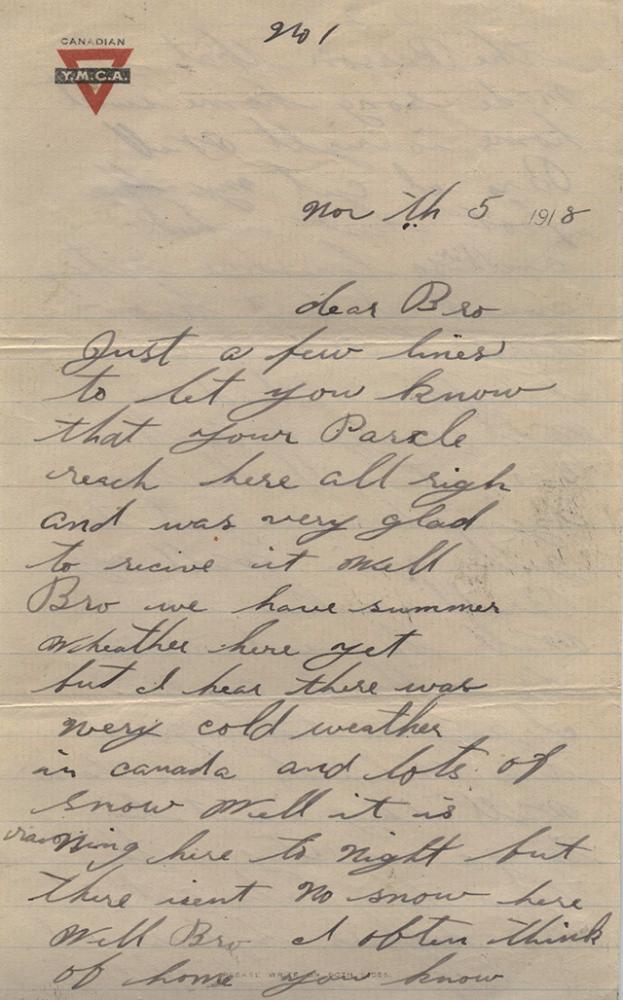 No 1
CANADIAN
Y.M.C.A.
Nov th 5 1918
dear Bro
Just a few lines
to let you know
that your Parcle
reach here all righ
and was very glad
to recive it Well
Bro we have summer
Wheather here yet
but I hear there was
very cold weather
in canada and lots of
snow Well it is
raining here to night but
there isent no snow here
Well Bro I often think
of home you know
PLEASE WRITE ON BOTH SIDES